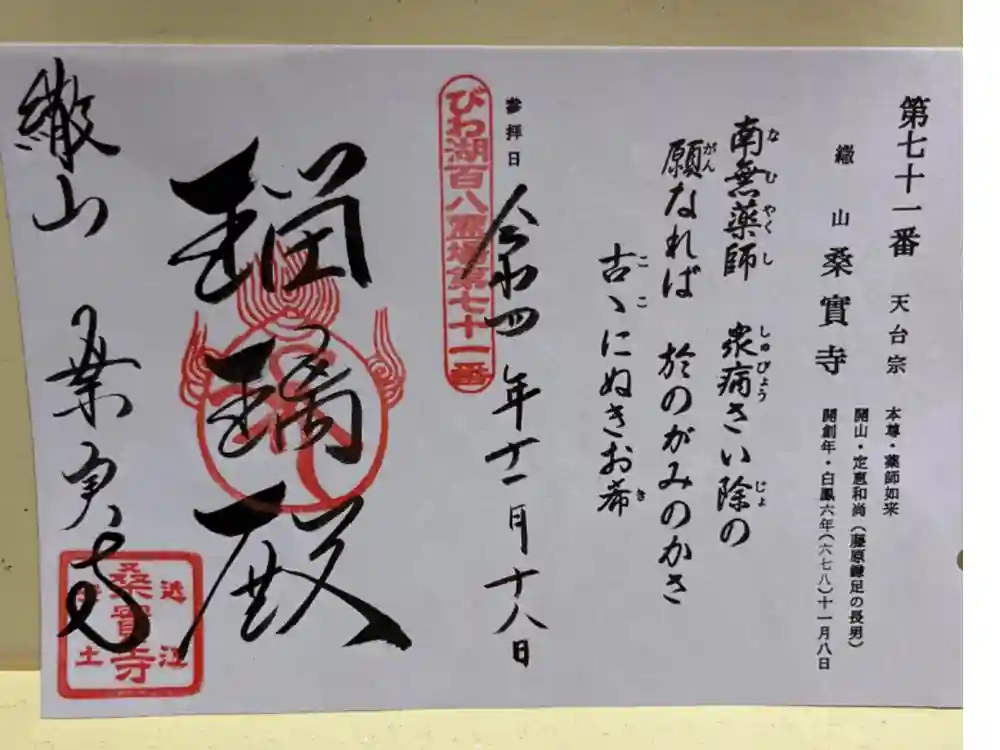 第七十一番 天台宗
繖山 桑實寺
本尊・薬師如来
開山・定恵和尚(藤原鎌足の長男)
開創年・白鳳六年(六七八)十一月八日
南無薬師 衆病さい除の
なむやくし しゅびょう じょ
願なれば 於のがみのかさ
がん
古ゝにぬきお希
ここ き
参拝日
令和四年十一月十八日
びわ湖百八霊場第七十一番
瑠璃殿
繖山 桑実寺
近江
桑實寺
安土